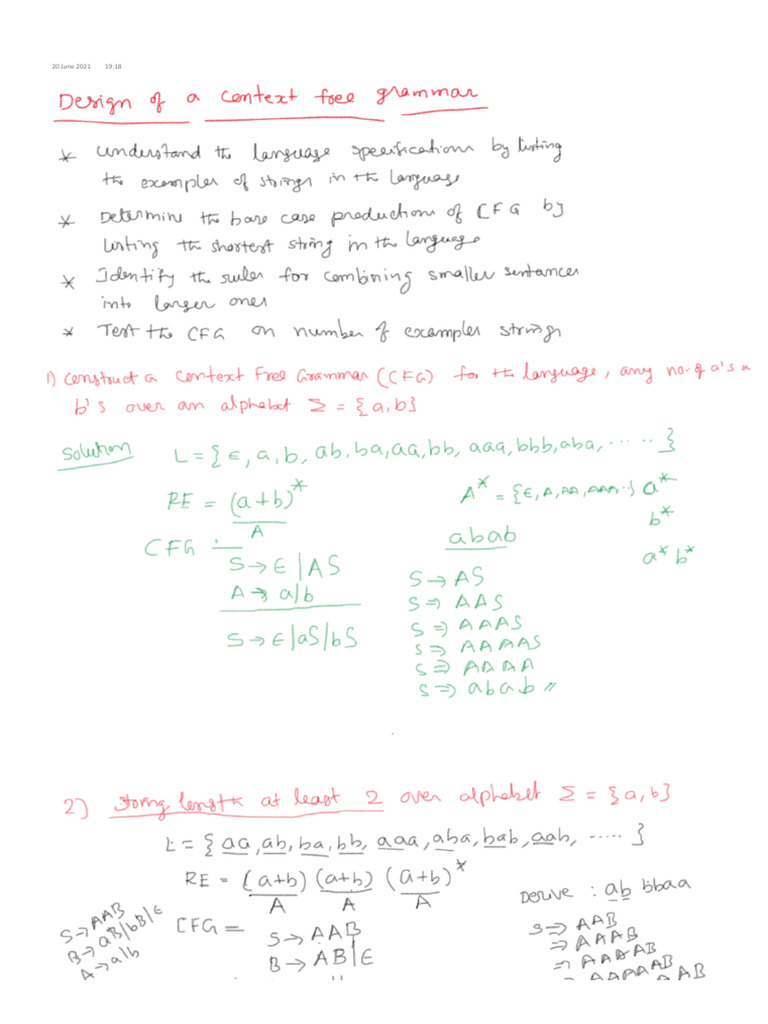 20 June 2021 19:18
Design of a context free grammar
* Understand the language specifications by listing
the examples of strings in the language
* Determine the base case production of CFG by
listing the shortest string in the language
* Identify the rules for combining smaller sentances
into larger ones
* Test the CFG on number of examples strings
1) Construct a Context Free Grammar (CFG) for the language, any no. of a's &
b's over an alphabet Σ = {a,b}
Solution L = {ε, a, b, ab, ba, aa, bb, aaa, bbb, aba, ..... }
RE = (a+b)* A* = {ε, A, AA, AAA..} a*
A b*
CFG : abab a* b*
S → ε | AS S → AS
A → a|b S ⇒ AAS
S → ε | aS | bS S ⇒ AAAS
S ⇒ AAAAS
S ⇒ AAAA
S ⇒ abab //
2) String length at least 2 over alphabet Σ = {a, b}
L = {aa, ab, ba, bb, aaa, aba, bab, aab, ..... }
RE = (a+b) (a+b) (a+b)* Derive : ab bbaa
A A A
S → AAB CFG = S → AAB S ⇒ AAB
B → aB|bB|ε B → AB|ε ⇒ AAAB
A → a|b ⇒ AAAAB
⇒ AAAAAB